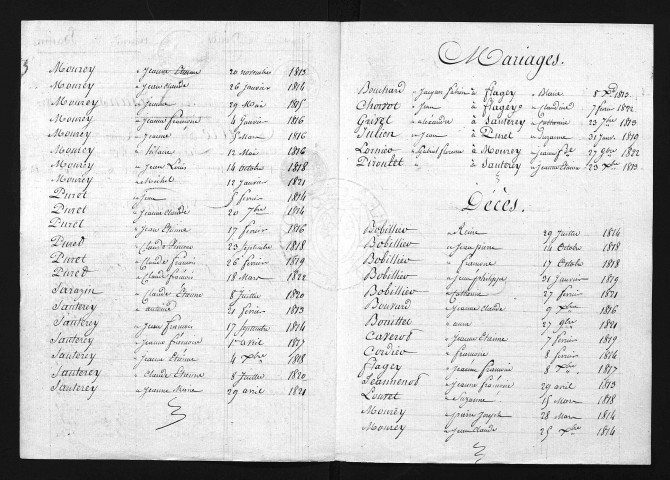 Mourey Jeanne Etienne 20 novembre 1813
Mourey Jeanne Claude 26 janvier 1814
Mourey 29 Mai 1815
Mourey Jeanne françoise 4 janvier 1816
Mourey Jeanne Mars 1816
Mourey hilaire 12 Mai 1816
Mourey Jean Louis 14 octobre 1818
Mourey Michel 12 janvier 1821
Puret 5 février 1814
Puret Jeanne Claude 20 7bre 1814
Puret Jean Etienne 17 février 1816
Puret Claude Etienne 23 septembre 1818
Puret Claude francois 26 février 1819
Puret Claude francois 18 Mars 1822
Sarazin Claude Etienne 8 juillet 1820
Santerey 21 février 1813
Santerey Jean francois 17 septembre 1814
Santerey Jeanne françoise 1er avril 1817
Santerey Jeanne Etienne 4 Xbre 1818
Santerey Claude Etienne 8 juillet 1820
Santerey Jeanne Marie 29 avril 1821
Mariages.
Bouchard Jacques à Flagey Marie 8 Xbre 1813.
Chorrot Jean à Flagey 7 février 1822
Grivet Alexandre à Santerey 23 7bre 1813
Julien Jean à Puret Suzanne 31 janv. 1819
Lornéo à Mourey Jeanne 27 9bre 1822
Piroutet à Santerey Jeanne Etienne 23 Xbre 1813.
Décès.
Bobillier Reine 29 juillet 1814
Bobillier Jean pierre 14 octobre 1818
Bobillier francoise 17 octobre 1818
Bobillier Jean philippe 31 janvier 1819
Bobillier 27 février 1821
Bouvard Jeanne Claude 9 Xbre 1816
Bouillet anne 27 9bre 1821
Caverod Jeanne Etienne 7 février 1819
Cordier francoise 8 février 1814
Flagey Jeanne francoise 8 Xbre 1817
Jeannenod Jeanne francoise 29 avril 1813
Louvet Suzanne 15 Mars 1818
Mourey pierre joseph 28 Mars 1814
Mourey Jean Claude 25 Xbre 1814